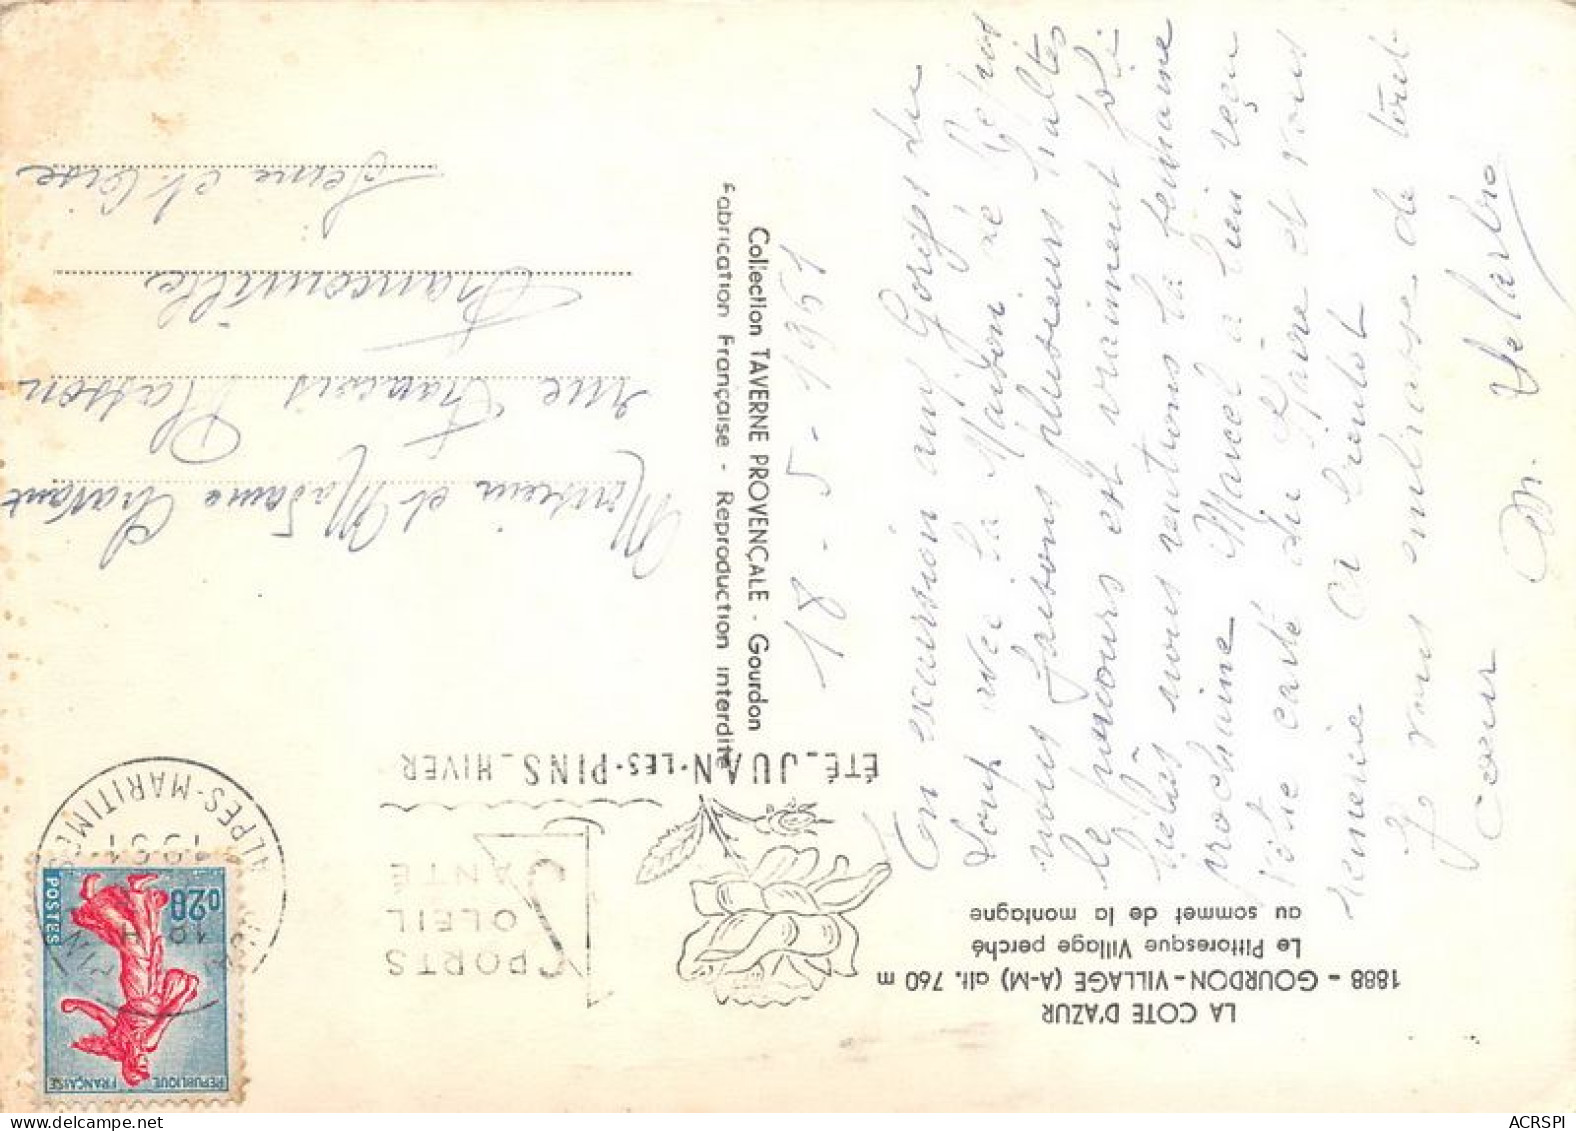 LA COTE D'AZUR
1888 - GOURDON-VILLAGE (A-M) alt. 760 m
Le Pittoresque Village perché
au sommet de la montagne
18-5-1961
En excursion aux Gorges du
Loup voici la Maison de Repos
nous faisons plusieurs haltes
le parcours est vraiment joli
hélas nous rentrons la semaine
prochaine Marcel a bien reçu
votre carte du Maire et vous
remercie
Je vous embrasse de tout
cœur
Collection TAVERNE PROVENÇALE - Gourdon
Fabrication Française - Reproduction interdite
ÉTÉ_JUAN-LES-PINS_HIVER
SPORTS
SOLEIL
SANTÉ
ALPES-MARITIMES
1961
18 H
0,20
POSTES
REPUBLIQUE FRANÇAISE
Monsieur et Madame Chavant
rue François Plasson
Franconville
Seine et Oise
ACRSPI